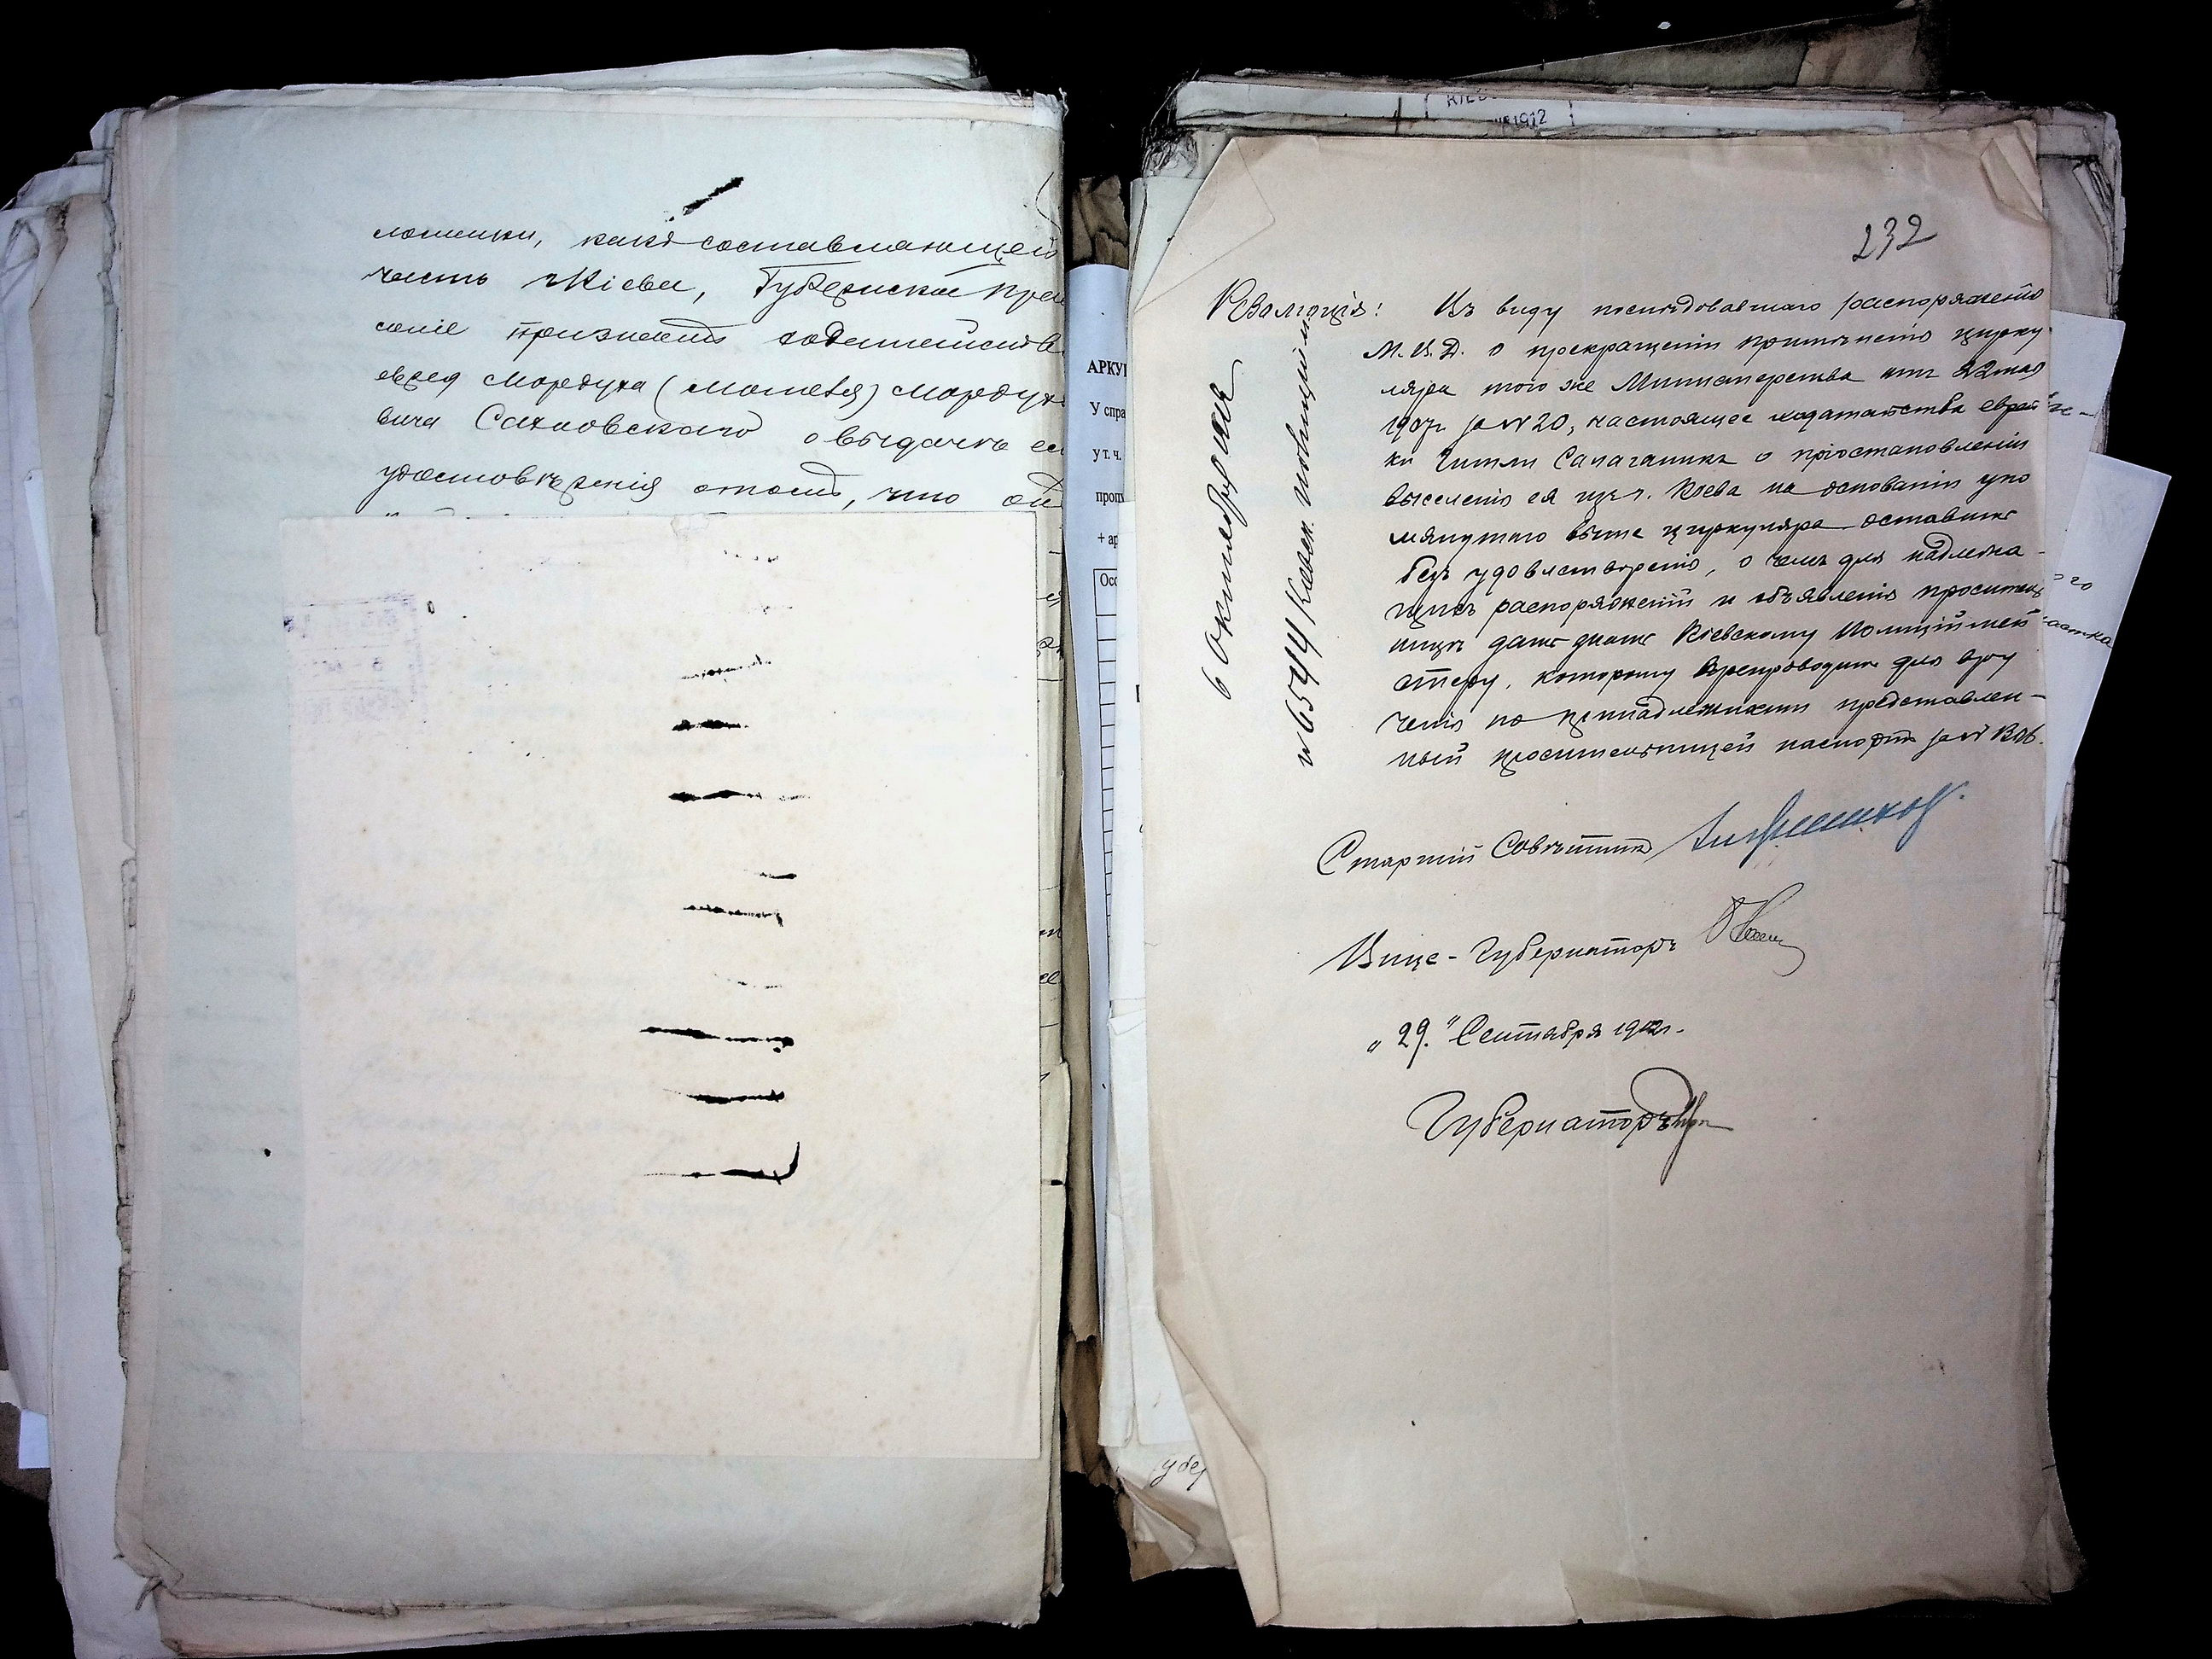 ломинки, какъ составляющей
часть г Кіева, Губернское Прав
леніе признаетъ ходатайств
еврея Мордуха (Мотеля) Мордух
вича Сахновскаго о выдачѣ ем
удостовѣренія о томъ, что он
АРКУ
У спра
у т. ч.
проп
+ ар
Осо
1912
232
Резолюція: Въ виду послѣдовавшаго распоряженія
М. В. Д. о прекращеніи примѣненія цирку
ляра того же Министерства отъ 22 мая
1907 г. за № 20, настоящее ходатайство еврей
ки Читли Салаганикъ о пріостановленіи
выселенія ея изъ г. Кіева на основаніи упо
мянутаго выше циркуляра оставить
безъ удовлетворенія, о чемъ для надлежа-
щихъ распоряженій и объявленія проситель
ницѣ дать знать Кіевскому Полиціймей
стеру, которому препроводить для вру
ченія по принадлежности представлен-
ный просительницей паспортъ за №
6 Октября
№ 6544 Кіевск. полицейм.
Старшій Совѣтникъ
Вице-Губернаторъ
„29." Сентября 1912 г.
Губернаторъ